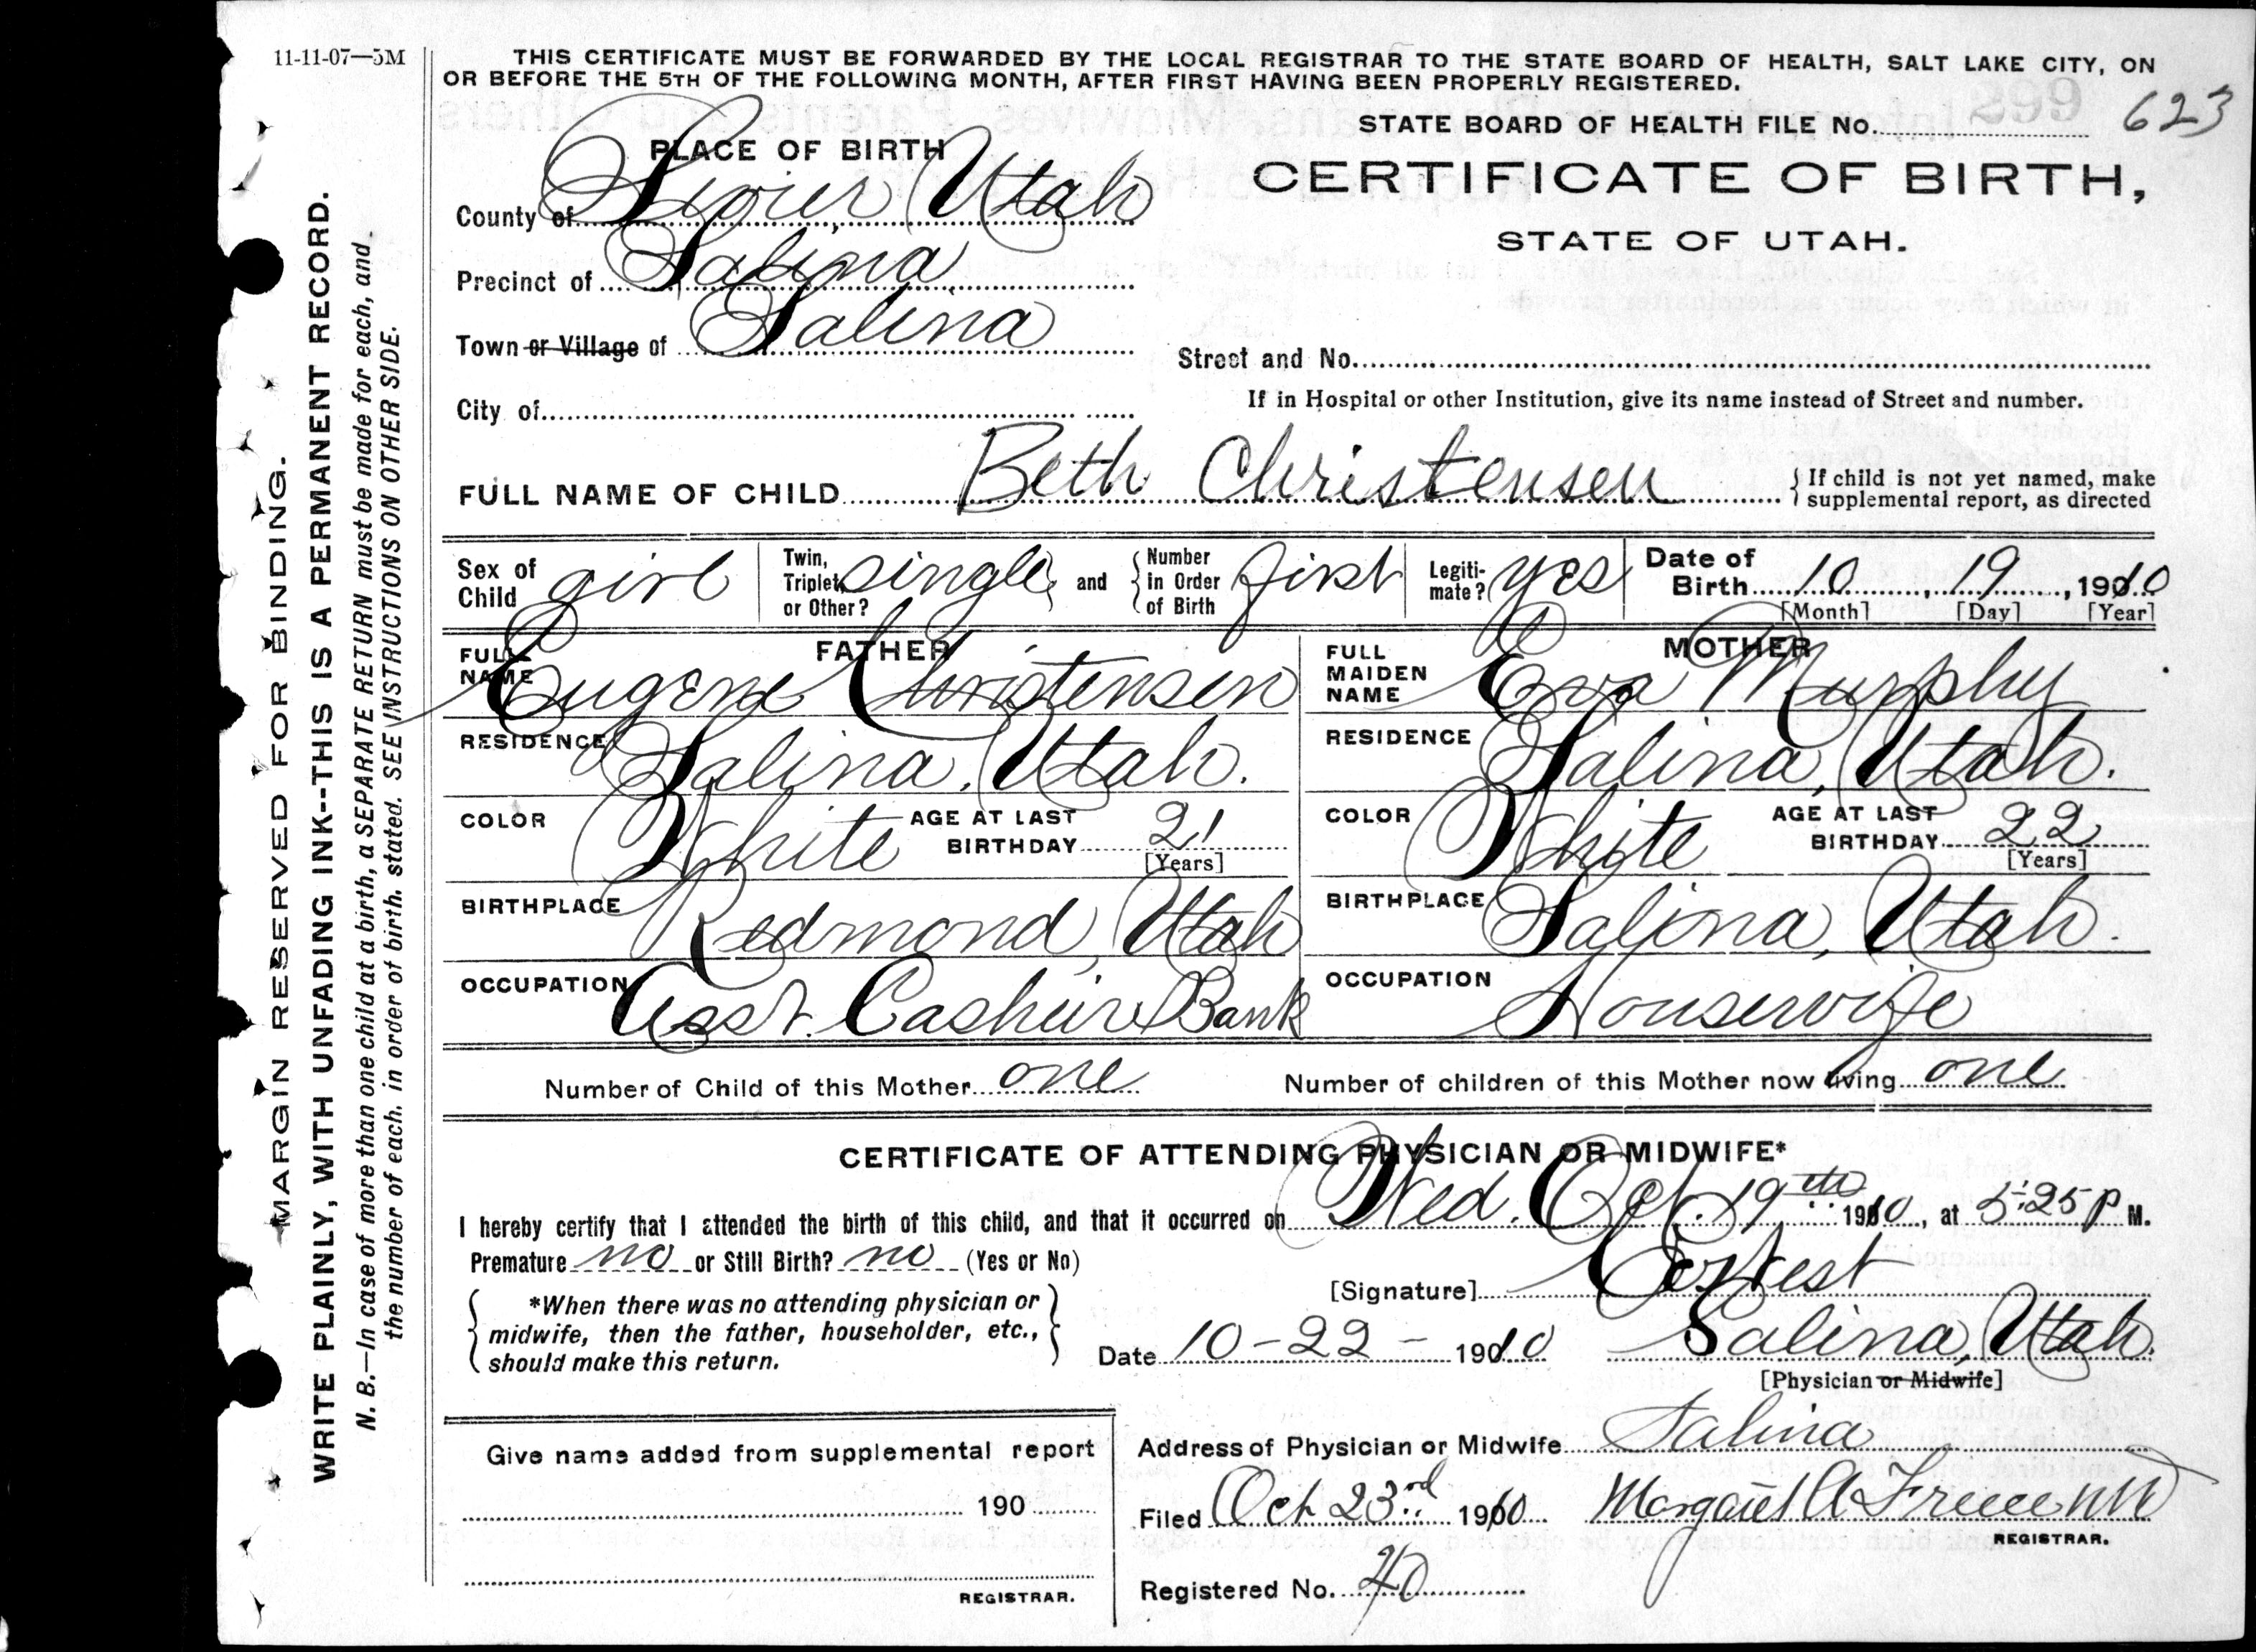 11-11-07—5M
THIS CERTIFICATE MUST BE FORWARDED BY THE LOCAL REGISTRAR TO THE STATE BOARD OF HEALTH, SALT LAKE CITY, ON
OR BEFORE THE 5TH OF THE FOLLOWING MONTH, AFTER FIRST HAVING BEEN PROPERLY REGISTERED.
MARGIN RESERVED FOR BINDING.
WRITE PLAINLY, WITH UNFADING INK--THIS IS A PERMANENT RECORD.
N. B.—In case of more than one child at a birth, a SEPARATE RETURN must be made for each, and
the number of each, in order of birth, stated. SEE INSTRUCTIONS ON OTHER SIDE.
STATE BOARD OF HEALTH FILE No. 623
PLACE OF BIRTH
CERTIFICATE OF BIRTH,
STATE OF UTAH.
County of Sevier Utah
Precinct of Salina
Town or Village of Salina
Street and No.
City of
If in Hospital or other Institution, give its name instead of Street and number.
FULL NAME OF CHILD Beth Christensen
{ If child is not yet named, make
supplemental report, as directed
Sex of Child girl
Twin, Triplet, or Other? single
and { Number in Order of Birth first
Legiti-mate? yes
Date of Birth 10, 19, 1910
[Month] [Day] [Year]
FATHER
FULL NAME Eugene Christensen
RESIDENCE Salina, Utah.
COLOR White AGE AT LAST BIRTHDAY 21
[Years]
BIRTHPLACE Redmond, Utah
OCCUPATION Asst. Cashier Bank
MOTHER
FULL MAIDEN NAME Eva Murphy
RESIDENCE Salina, Utah.
COLOR White AGE AT LAST BIRTHDAY 22
[Years]
BIRTHPLACE Salina, Utah.
OCCUPATION Housewife
Number of Child of this Mother one Number of children of this Mother now living one
CERTIFICATE OF ATTENDING PHYSICIAN OR MIDWIFE*
I hereby certify that I attended the birth of this child, and that it occurred on Wed. Oct. 19th 1910, at 5:25 P M.
Premature no or Still Birth? no (Yes or No)
{ *When there was no attending physician or
midwife, then the father, householder, etc.,
should make this return. }
[Signature]
Date 10-22- 1910 Salina, Utah.
[Physician or Midwife]
Give name added from supplemental report
190
REGISTRAR.
Address of Physician or Midwife Salina
Filed Oct 23rd 1910 Margaret A
REGISTRAR.
Registered No. 40